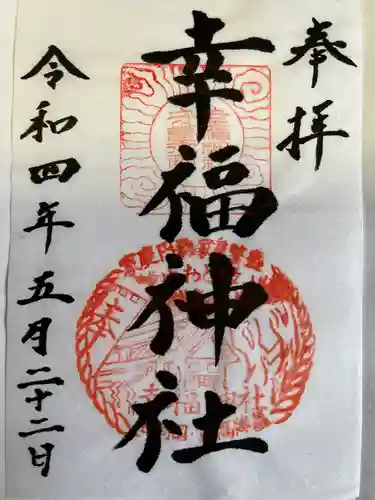 奉拝
幸福神社
令和四年五月二十二日